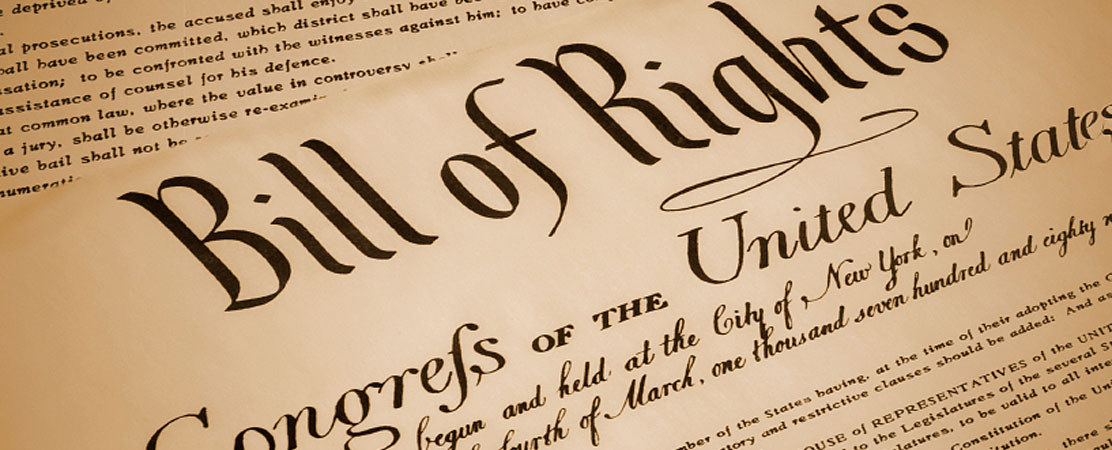 deprived of
al prosecutions, the accused shall enjoy
all have been committed, which district shall have be
sation; to be confronted with the witnesses against him; to have
assistance of counsel for his defence.
at common law, where the value in controversy
a jury, shall be otherwise re-exami
ive bail shall not be
numerati
Bill of Rights
Congreſs OF THE United States
begun and held at the City of New York, on
fourth of March, one thousand seven hundred and eighty
mber of the States having, at the time of their adopting the
tory and restrictive clauses should be added: And as
OUSE of REPRESENTATIVES of the UNIT
to the Legislatures of the several St
latures, to be valid to all inte
Constitution of the Uni
itution.
there s